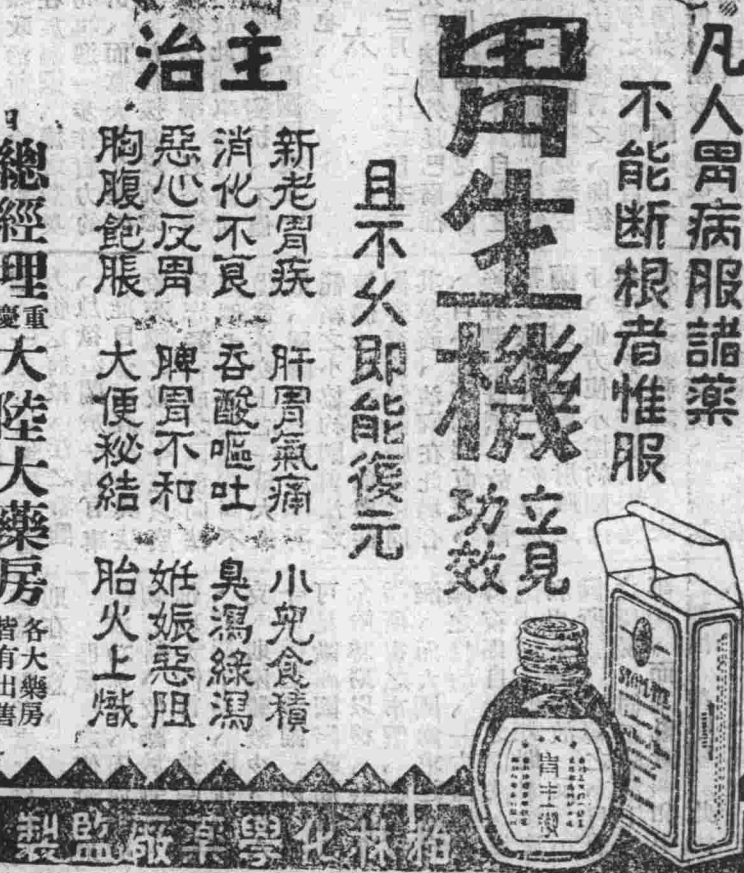 凡人胃病服諸藥
不能断根者惟服
胃生機
立見
功效
且不久即能復元
主治
新老胃疾
肝胃氣痛
小兒食積
消化不良
吞酸嘔吐
臭瀉綠瀉
惡心反胃
脾胃不和
姙娠惡阻
胸腹飽脹
大便秘結
胎火上熾
總經理
重慶
大陸大藥房
各大藥房
皆有出售
胃生機
柏林化學藥廠監製